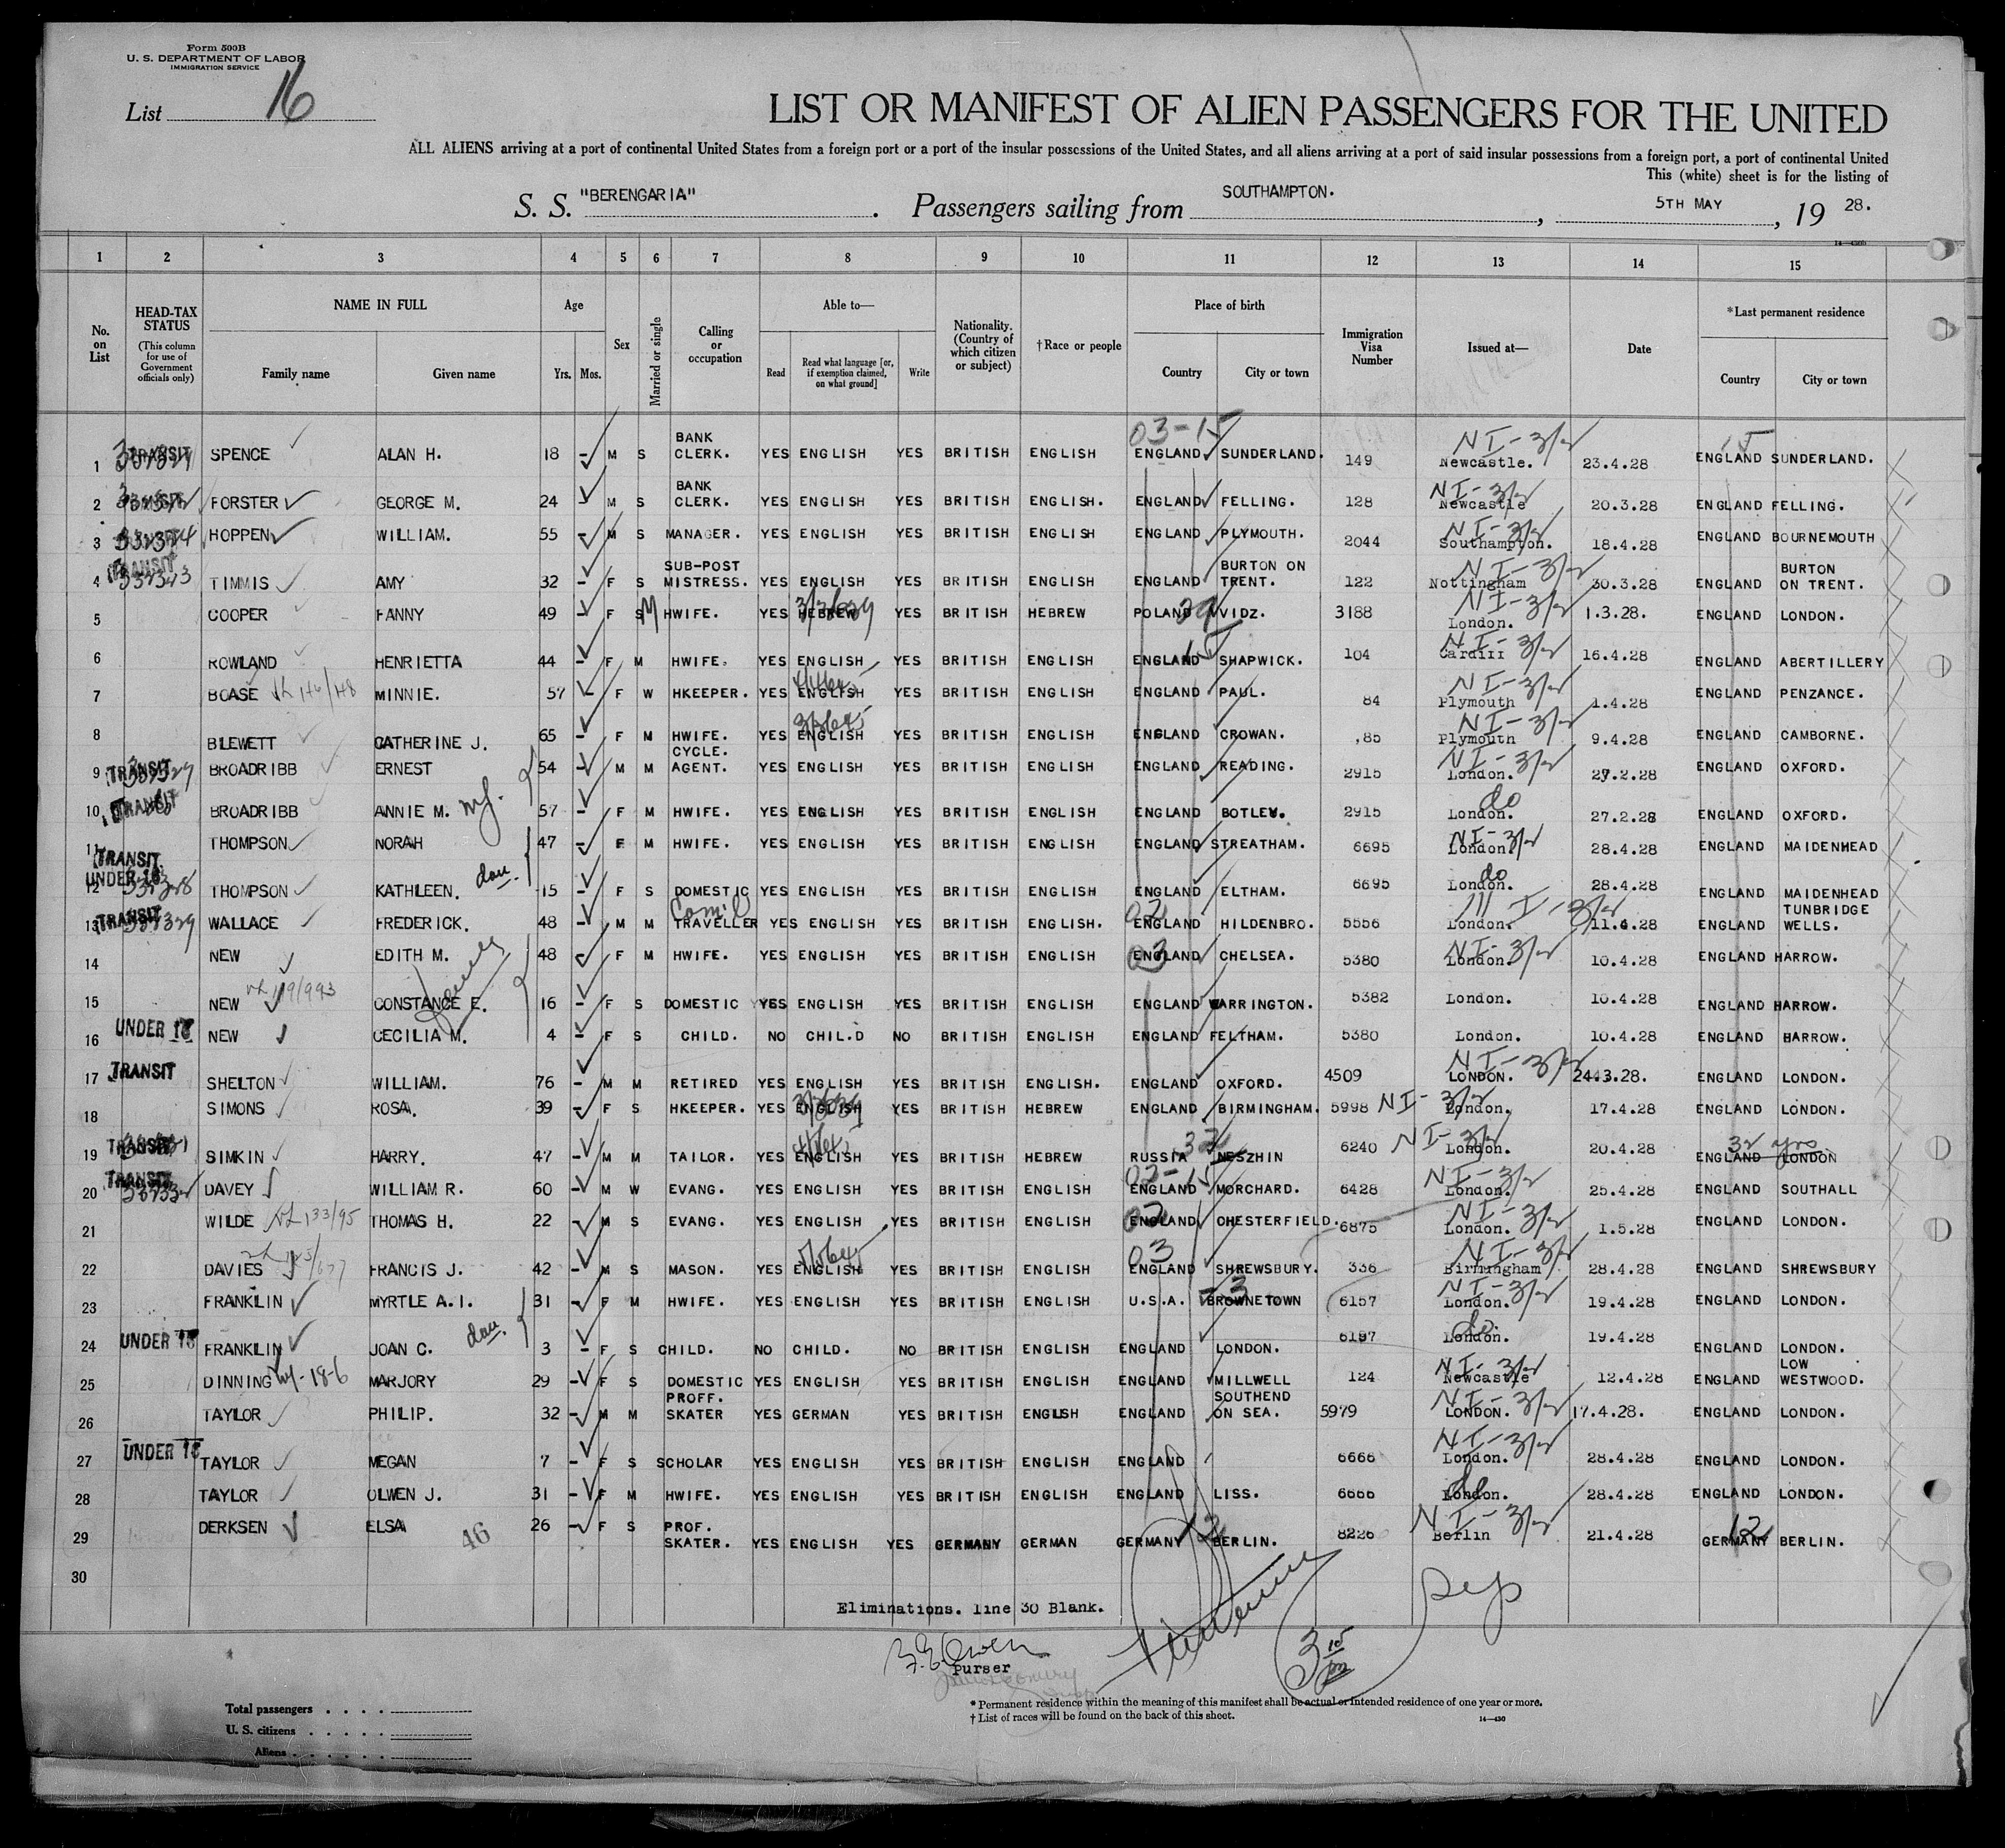 Form 500B
U. S. DEPARTMENT OF LABOR
IMMIGRATION SERVICE
List 16
LIST OR MANIFEST OF ALIEN PASSENGERS FOR THE UNITED
ALL ALIENS arriving at a port of continental United States from a foreign port or a port of the insular possessions of the United States, and all aliens arriving at a port of said insular possessions from a foreign port, a port of continental United
This (white) sheet is for the listing of
S. S. "BERENGARIA". Passengers sailing from SOUTHAMPTON., 5TH MAY, 19 28.
1 2 3 4 5 6 7 8 9 10 11 12 13 14 15
No. on List
HEAD-TAX STATUS
(This column for use of Government officials only)
NAME IN FULL
Family name Given name
Age
Yrs. Mos.
Sex
Married or single
Calling or occupation
Able to—
Read Read what language [or, if exemption claimed, on what ground] Write
Nationality. (Country of which citizen or subject)
†Race or people
Place of birth
Country City or town
Immigration Visa Number
Issued at—
Date
*Last permanent residence
Country City or town
03-15
1 TRANSIT SPENCE ALAN H. 18 - M S BANK CLERK. YES ENGLISH YES BRITISH ENGLISH ENGLAND SUNDERLAND. 149 Newcastle. 23.4.28 ENGLAND SUNDERLAND.
2 FORSTER GEORGE M. 24 M S BANK CLERK. YES ENGLISH YES BRITISH ENGLISH. ENGLAND FELLING. 128 Newcastle 20.3.28 ENGLAND FELLING.
3 HOPPEN WILLIAM. 55 - M S MANAGER. YES ENGLISH YES BRITISH ENGLISH ENGLAND PLYMOUTH. 2044 Southampton. 18.4.28 ENGLAND BOURNEMOUTH
4 TRANSIT TIMMIS AMY 32 - F S SUB-POST MISTRESS. YES ENGLISH YES BRITISH ENGLISH ENGLAND BURTON ON TRENT. 122 Nottingham 30.3.28 ENGLAND BURTON ON TRENT.
5 COOPER FANNY 49 - F S M HWIFE. YES HEBREW YES BRITISH HEBREW POLAND VIDZ. 3188 London. 1.3.28. ENGLAND LONDON.
6 ROWLAND HENRIETTA 44 - F M HWIFE. YES ENGLISH YES BRITISH ENGLISH ENGLAND SHAPWICK. 104 Cardiff 16.4.28 ENGLAND ABERTILLERY
7 BOASE MINNIE. 57 - F W HKEEPER. YES ENGLISH YES BRITISH ENGLISH ENGLAND PAUL. 84 Plymouth 1.4.28 ENGLAND PENZANCE.
8 BLEWETT CATHERINE J. 65 - F M HWIFE. YES ENGLISH YES BRITISH ENGLISH ENGLAND CROWAN. 85 Plymouth 9.4.28 ENGLAND CAMBORNE.
9 TRANSIT BROADRIBB ERNEST 54 - M M CYCLE. AGENT. YES ENGLISH YES BRITISH ENGLISH ENGLAND READING. 2915 London. 27.2.28 ENGLAND OXFORD.
10 TRANSIT BROADRIBB ANNIE M. wf. 57 - F M HWIFE. YES ENGLISH YES BRITISH ENGLISH ENGLAND BOTLEY. 2915 do London. 27.2.28 ENGLAND OXFORD.
11 THOMPSON NORAH 47 - F M HWIFE. YES ENGLISH YES BRITISH ENGLISH ENGLAND STREATHAM. 6695 London. 28.4.28 ENGLAND MAIDENHEAD
12 TRANSIT UNDER 16 THOMPSON KATHLEEN. dau. 15 F S DOMESTIC YES ENGLISH YES BRITISH ENGLISH ENGLAND ELTHAM. 6695 do London. 28.4.28 ENGLAND MAIDENHEAD
13 TRANSIT WALLACE FREDERICK. 48 - M M Com'l TRAVELLER YES ENGLISH YES BRITISH ENGLISH. 02 ENGLAND HILDENBRO. 5556 London. 11.4.28 ENGLAND TUNBRIDGE WELLS.
14 NEW EDITH M. 48 F M HWIFE. YES ENGLISH YES BRITISH ENGLISH 03 ENGLAND CHELSEA. 5380 London. 10.4.28 ENGLAND HARROW.
15 NEW CONSTANCE E. 16 - F S DOMESTIC YES ENGLISH YES BRITISH ENGLISH ENGLAND WARRINGTON. 5382 London. 10.4.28 ENGLAND HARROW.
16 UNDER 16 NEW CECILIA M. 4 - F S CHILD. NO CHILD NO BRITISH ENGLISH ENGLAND FELTHAM. 5380 London. 10.4.28 ENGLAND HARROW.
17 TRANSIT SHELTON WILLIAM. 76 - M M RETIRED YES ENGLISH YES BRITISH ENGLISH. ENGLAND OXFORD. 4509 LONDON. 24.3.28. ENGLAND LONDON.
18 SIMONS ROSA. 39 - F S HKEEPER. YES ENGLISH YES BRITISH HEBREW ENGLAND BIRMINGHAM. 5998 London. 17.4.28 ENGLAND LONDON.
19 TRANSIT SIMKIN HARRY. 47 - M M TAILOR. YES ENGLISH YES BRITISH HEBREW RUSSIA NESZHIN 6240 London. 20.4.28 32 yrs ENGLAND LONDON
20 TRANSIT DAVEY WILLIAM R. 60 - M W EVANG. YES ENGLISH YES BRITISH ENGLISH ENGLAND MORCHARD. 6428 London. 25.4.28 ENGLAND SOUTHALL
21 WILDE THOMAS H. 22 - M S EVANG. YES ENGLISH YES BRITISH ENGLISH ENGLAND CHESTERFIELD. 6875 London. 1.5.28 ENGLAND LONDON.
22 DAVIES FRANCIS J. 42 - M S MASON. YES ENGLISH YES BRITISH ENGLISH 03 ENGLAND SHREWSBURY. 336 Birmingham 28.4.28 ENGLAND SHREWSBURY
23 FRANKLIN MYRTLE A.I. 31 - F M HWIFE. YES ENGLISH YES BRITISH ENGLISH U.S.A. BROWNETOWN 6157 London. 19.4.28 ENGLAND LONDON.
24 UNDER 16 FRANKLIN JOAN C. dau. 3 - F S CHILD. NO CHILD. NO BRITISH ENGLISH ENGLAND LONDON. 6197 do London. 19.4.28 ENGLAND LONDON.
25 DINNING MARJORY 29 - F S DOMESTIC YES ENGLISH YES BRITISH ENGLISH ENGLAND MILLWELL 124 Newcastle 12.4.28 ENGLAND LOW WESTWOOD.
26 TAYLOR PHILIP. 32 - M M PROFF. SKATER YES GERMAN YES BRITISH ENGLISH ENGLAND SOUTHEND ON SEA. 5979 LONDON. 17.4.28. ENGLAND LONDON.
27 UNDER 16 TAYLOR MEGAN 7 - F S SCHOLAR YES ENGLISH YES BRITISH ENGLISH ENGLAND 6666 London. 28.4.28 ENGLAND LONDON.
28 TAYLOR OLWEN J. 31 - F M HWIFE. YES ENGLISH YES BRITISH ENGLISH ENGLAND LISS. 6666 do London. 28.4.28 ENGLAND LONDON.
29 DERKSEN ELSA 46 26 - F S PROF. SKATER. YES ENGLISH YES GERMANY GERMAN GERMANY 12 BERLIN. 8226 Berlin 21.4.28 12 GERMANY BERLIN.
30
Eliminations. line 30 Blank.
Purser
* Permanent residence within the meaning of this manifest shall be actual or intended residence of one year or more.
† List of races will be found on the back of this sheet.
14—430
Total passengers
U. S. citizens
Aliens